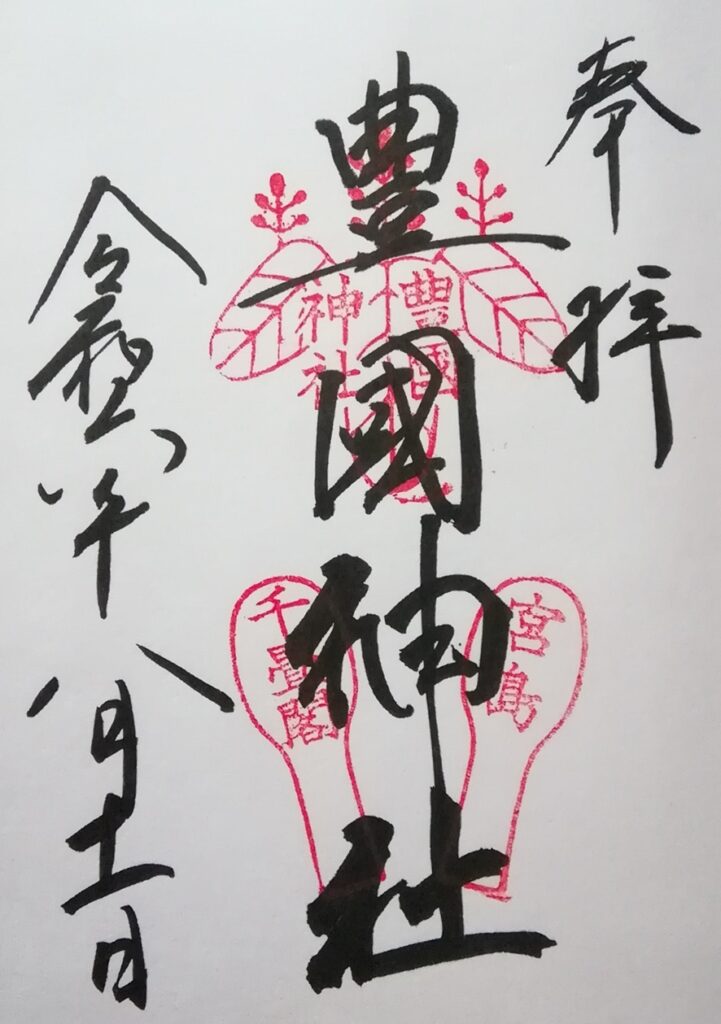 奉拝
豊國神社
令和六年八月十一日
豊國
神社
宮島
千畳閣